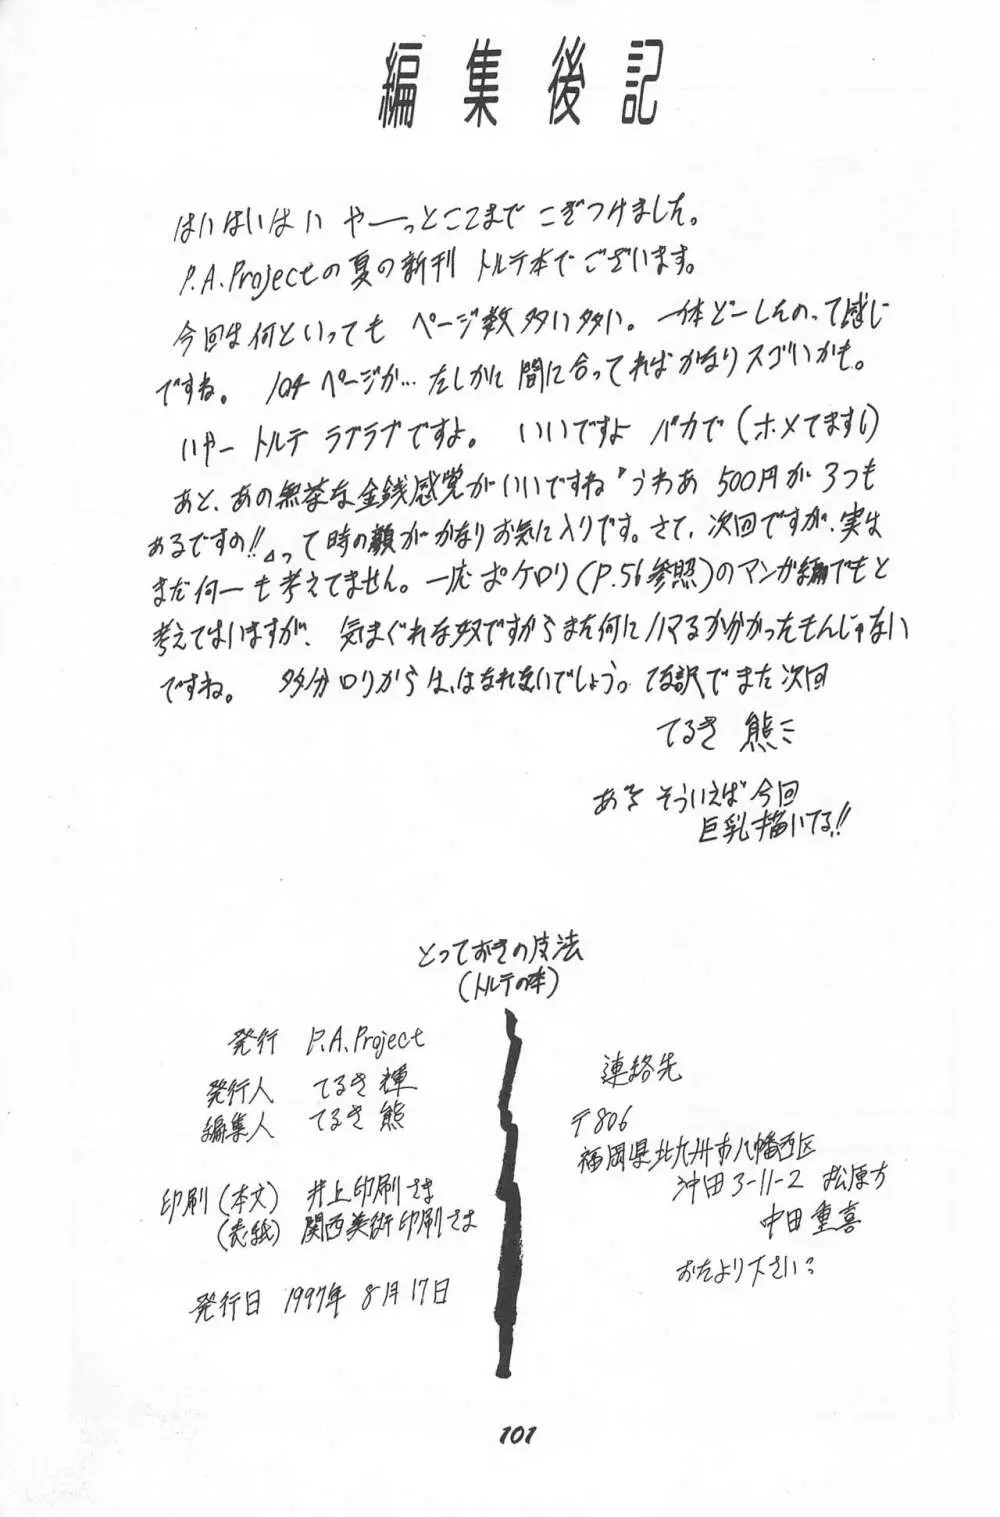 編集後記
はいはいはい やーっとここまで こぎつけました。
P.A.Projectの夏の新刊 トルテ本でございます。
今回は何といっても ページ数多い多い。 一体どーしたのって感じ
ですね。 104ページか… たしかに 間に合ってればかなりスゴいかも。
いやー トルテ ラブラブですよ。 いいですよ バカで(ホメてます!)
あと、あの無茶な金銭感覚がいいですね『うわあ 500円が 3つも
あるですの!!』って時の顔がかなりお気に入りです。さて、次回ですが、実は
まだ何ーも考えてません。一応ポケロリ(P.56参照)のマンガ編でもと
考えてはいますが、 気まぐれな奴ですからまた何にハマるか分かったもんじゃない
ですね。 多分ロリからは、はなれないでしょうっ てな訳でまた次回
てるき 熊ミ
あっそういえば 今回
巨乳描いてる!!
とっておきの技法
(トルテの本)
発行 P.A.Project
発行人 てるき 輝
編集人 てるき 熊
印刷(本文) 井上印刷さま
(表紙) 関西美術印刷さま
発行日 1997年 8月17日
連絡先
〒806
福岡県北九州市八幡西区
沖田3-11-2 松原方
中田 重喜
おたより下さい?
101